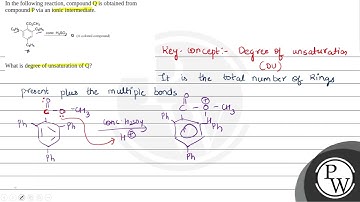 In the following reaction, compound Q is obtained from
compound P via an ionic intermediate.
CO₂CH₃
C₆H₅
C₆H₅
conc. H₂SO₄
Q (A colored compound)
C₆H₅
P
What is degree of unsaturation of Q?
Key-concept:- Degree of unsaturation
(DU)
It is the total number of Rings
present plus the multiple bonds
O
C
O
CH₃
Ph
Ph
Ph
conc. H₂SO₄
H⊕
O
C
O
⊕
CH₃
H
Ph
Ph
Ph
P
W